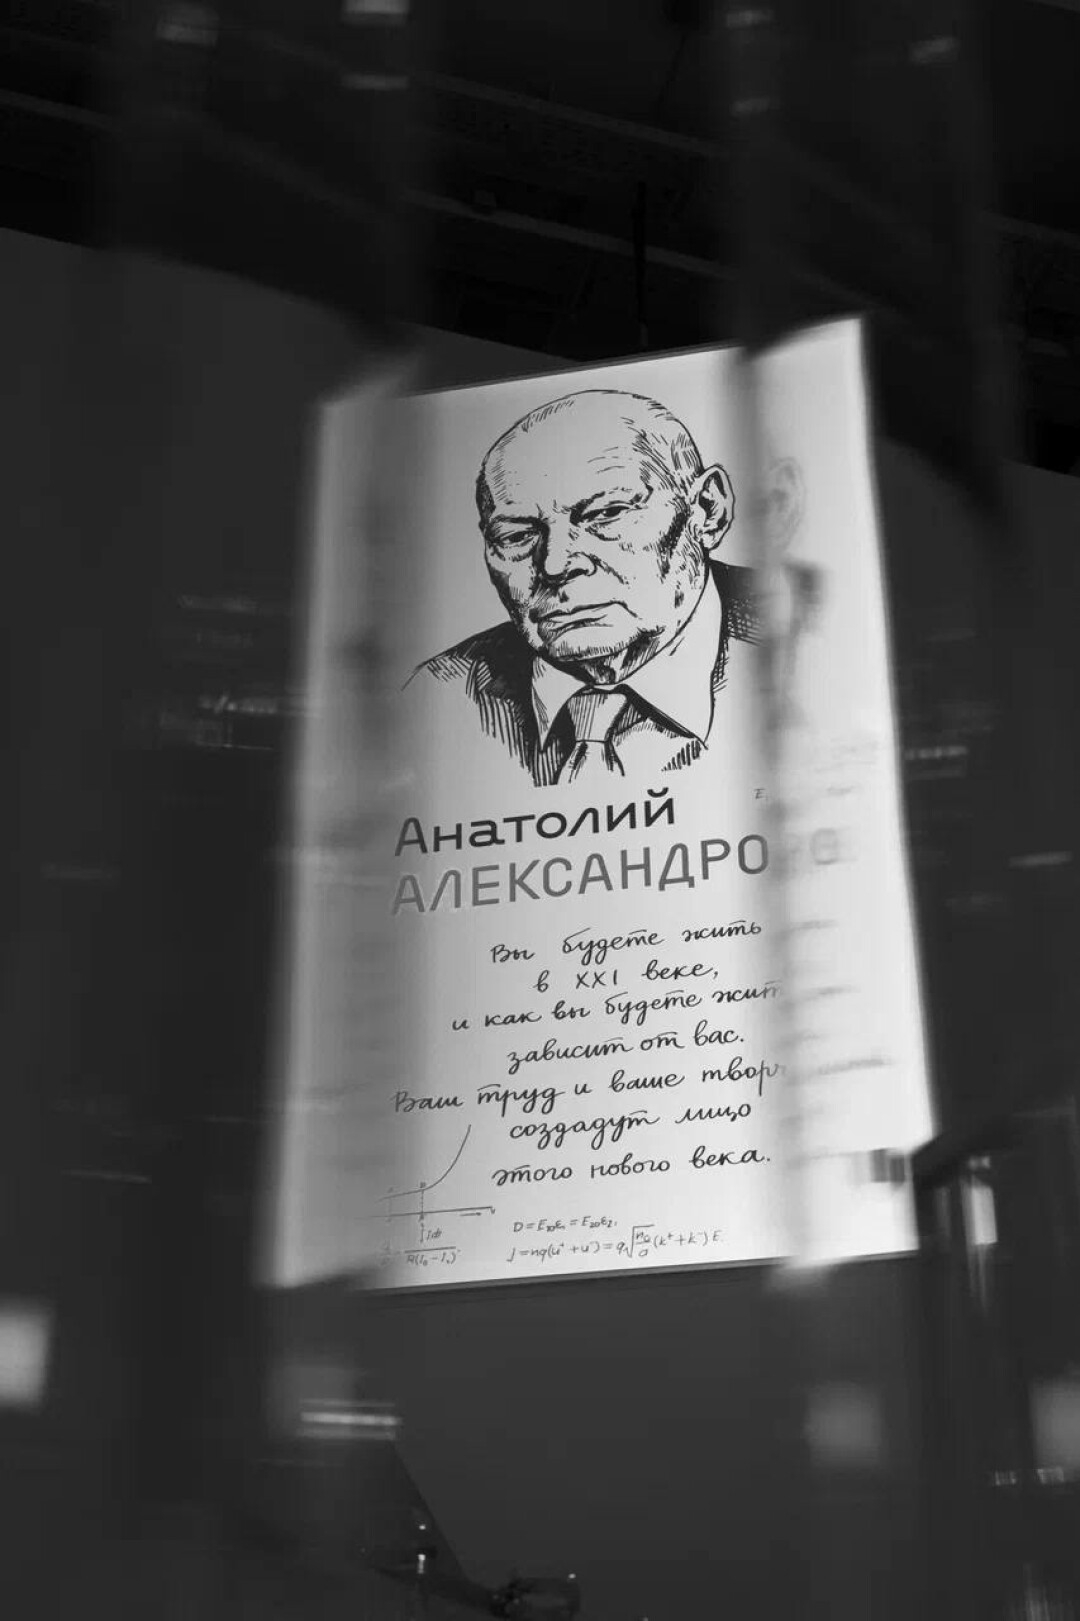 Анатолий
АЛЕКСАНДРО
Вы будете жить
в XXI веке,
и как вы будете жит
зависит от вас.
Ваш труд и ваше твор
создадут лицо
этого нового века.
D=E₁₀ε₁=E₂₀ε₂,